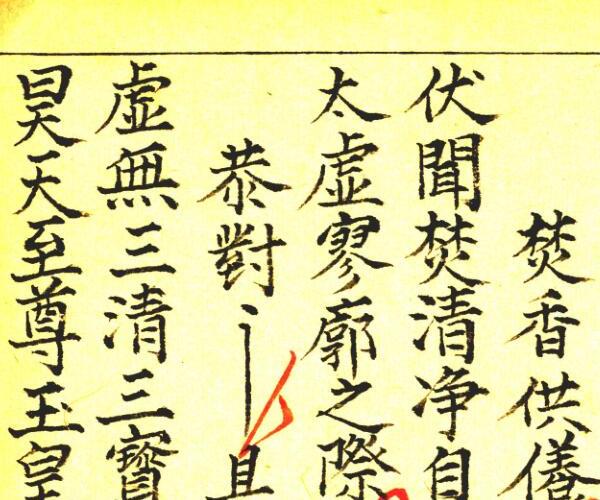 焚香供儀
伏聞焚清净自
太虛寥廓之際
恭對
虛無三清三寳
昊天至尊玉皇